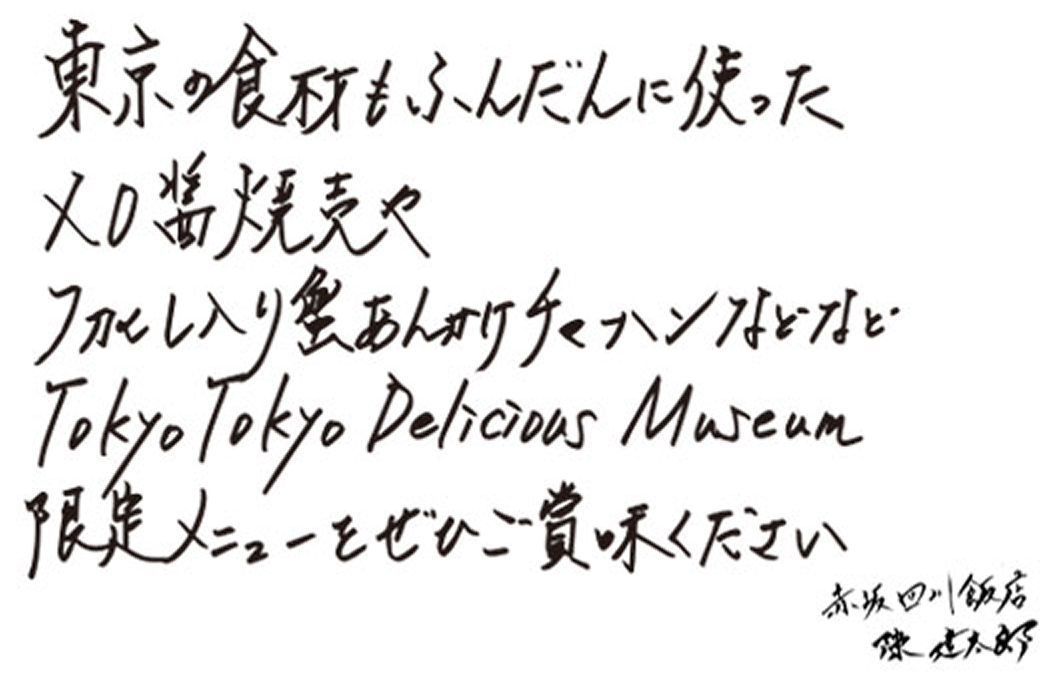 東京の食材もふんだんに使った
XO醤焼売や
フカヒレ入り蟹あんかけチャーハンなどなど
Tokyo Tokyo Delicious Museum
限定メニューをぜひご賞味ください
赤坂四川飯店
陳建太郎